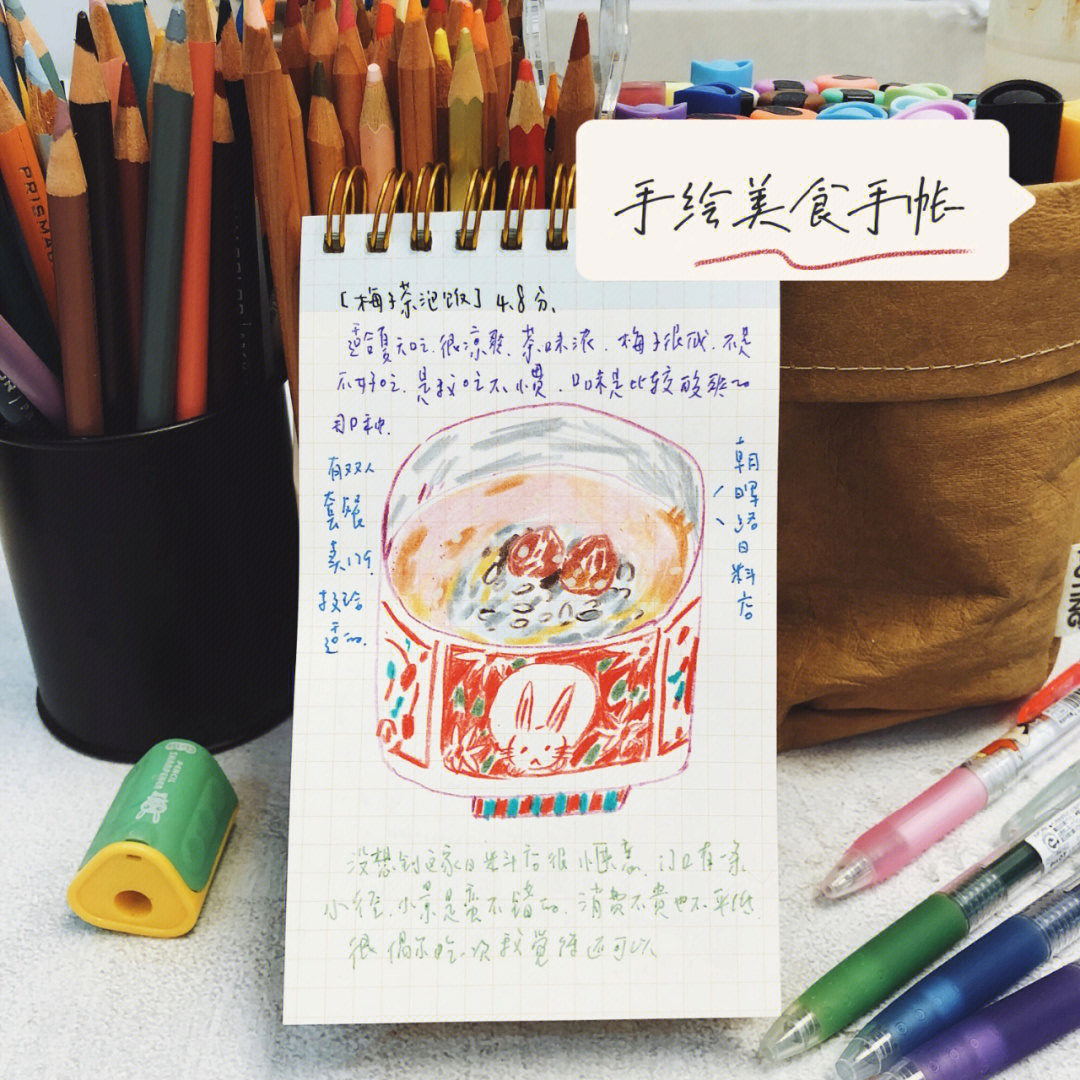 手绘美食手帐
[梅子茶泡饭] 4.8分、
适合夏天吃.很凉爽.茶味浓.梅子很咸.不是
不好吃.是我吃不惯.口味是比较酸爽的
那种.
有双人
套餐
卖17.
较合
适的.
朝
晖
路
日
料
店
没想到这家日料店很惬意.门口有一条
小径.小景是蛮不错的.消费不贵也不平价.
很偶尔吃一次我觉得还可以
PRISMA
PENCIL
SHARPENER
TING